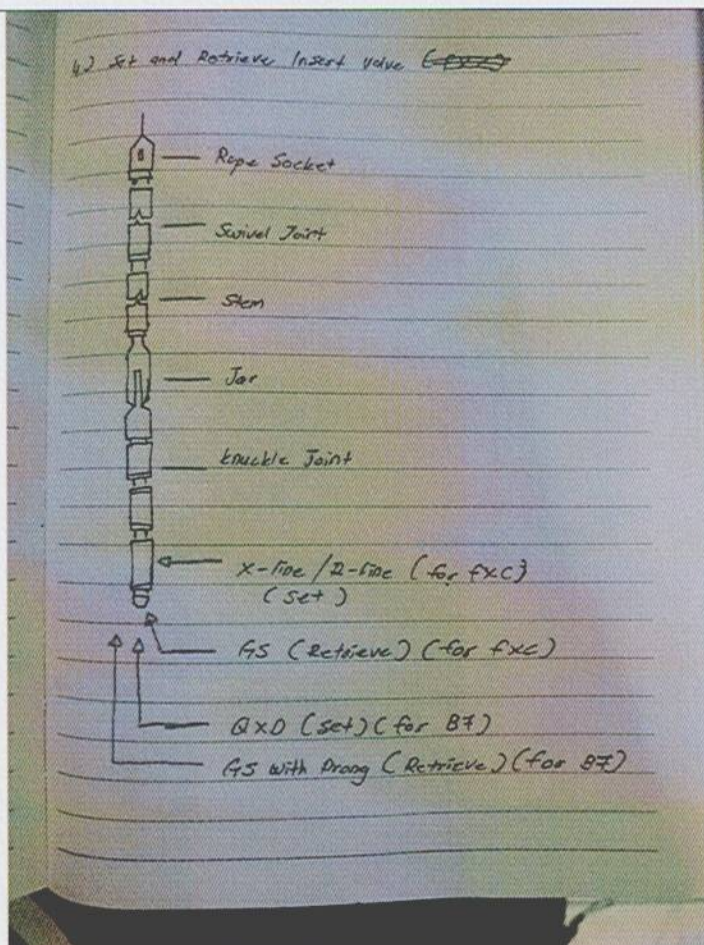 4) Set and Retrieve Insert valve
Rope Socket
Swivel Joint
Stem
Jar
Knuckle Joint
X-line / R-line (for fxc)
(Set)
GS (Retrieve) (for fxc)
QXD (set) (for B7)
GS with Prong (Retrieve) (for B7)